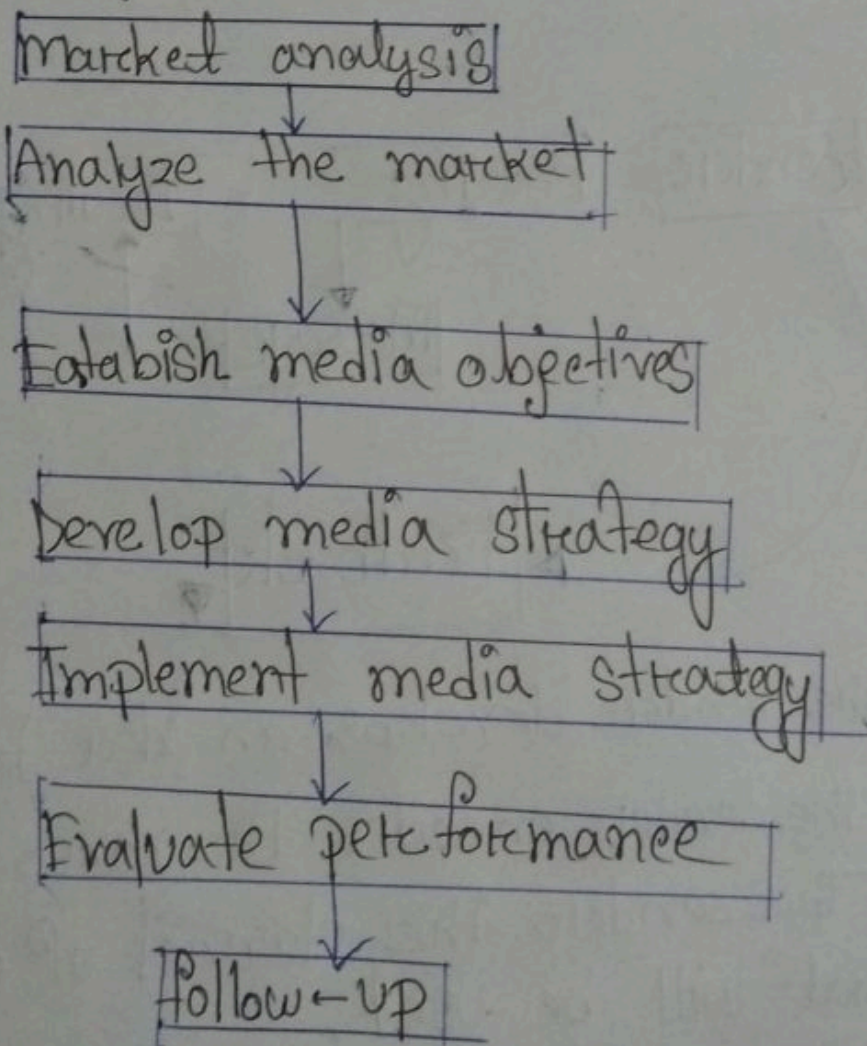 Market analysis
Analyze the market
Eatabish media objetives
Develop media strategy
Implement media strategy
Evaluate performance
follow-up